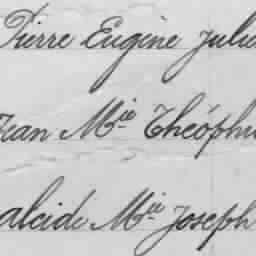 Pierre Eugène Julie
Jean Mie Théophi
alcide Mie Joseph